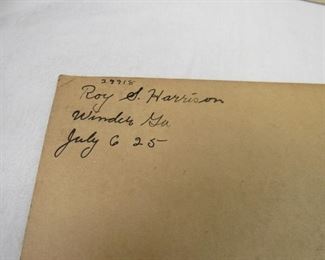 29918
Roy S. Harrison
Winder Ga
July 6 25